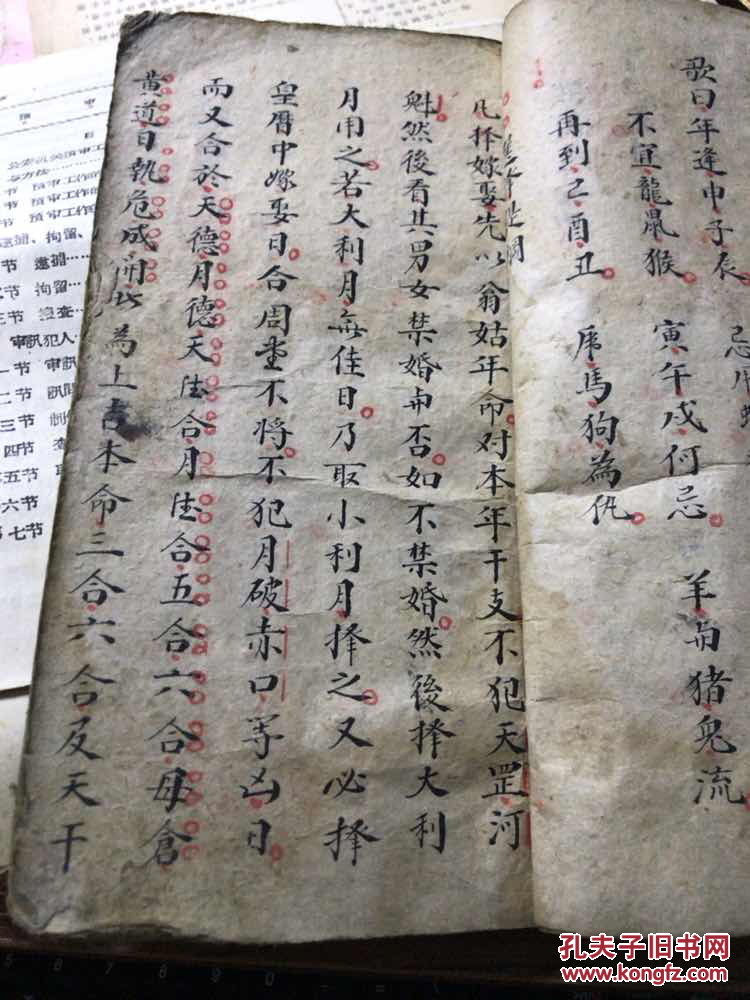 歌曰年逢申子辰
不宜龍鼠猴
再到己酉丑
忌
寅午戍何忌
虎馬狗為仇
羊与猪兔流
凡择嫁娶先以翁姑年命对本年干支不犯天罡河
魁然後看其男女禁婚与否如不禁婚然後择大利
月用之若大利月無佳日乃取小利月择之又必择
皇曆中嫁娶日合周堂不将不犯月破赤口等凶日
而又合於天德月德天德合月德合五合六合母倉
黄道日執危成開此為上吉本命三合六合及天干
预审工作的
预审工作
逮捕、拘留
节 逮捕
节 拘留
审訊犯人
一节 审訊
二节 訊問
三节
四节
五节
六节
七节
孔夫子旧书网
www.kongfz.com